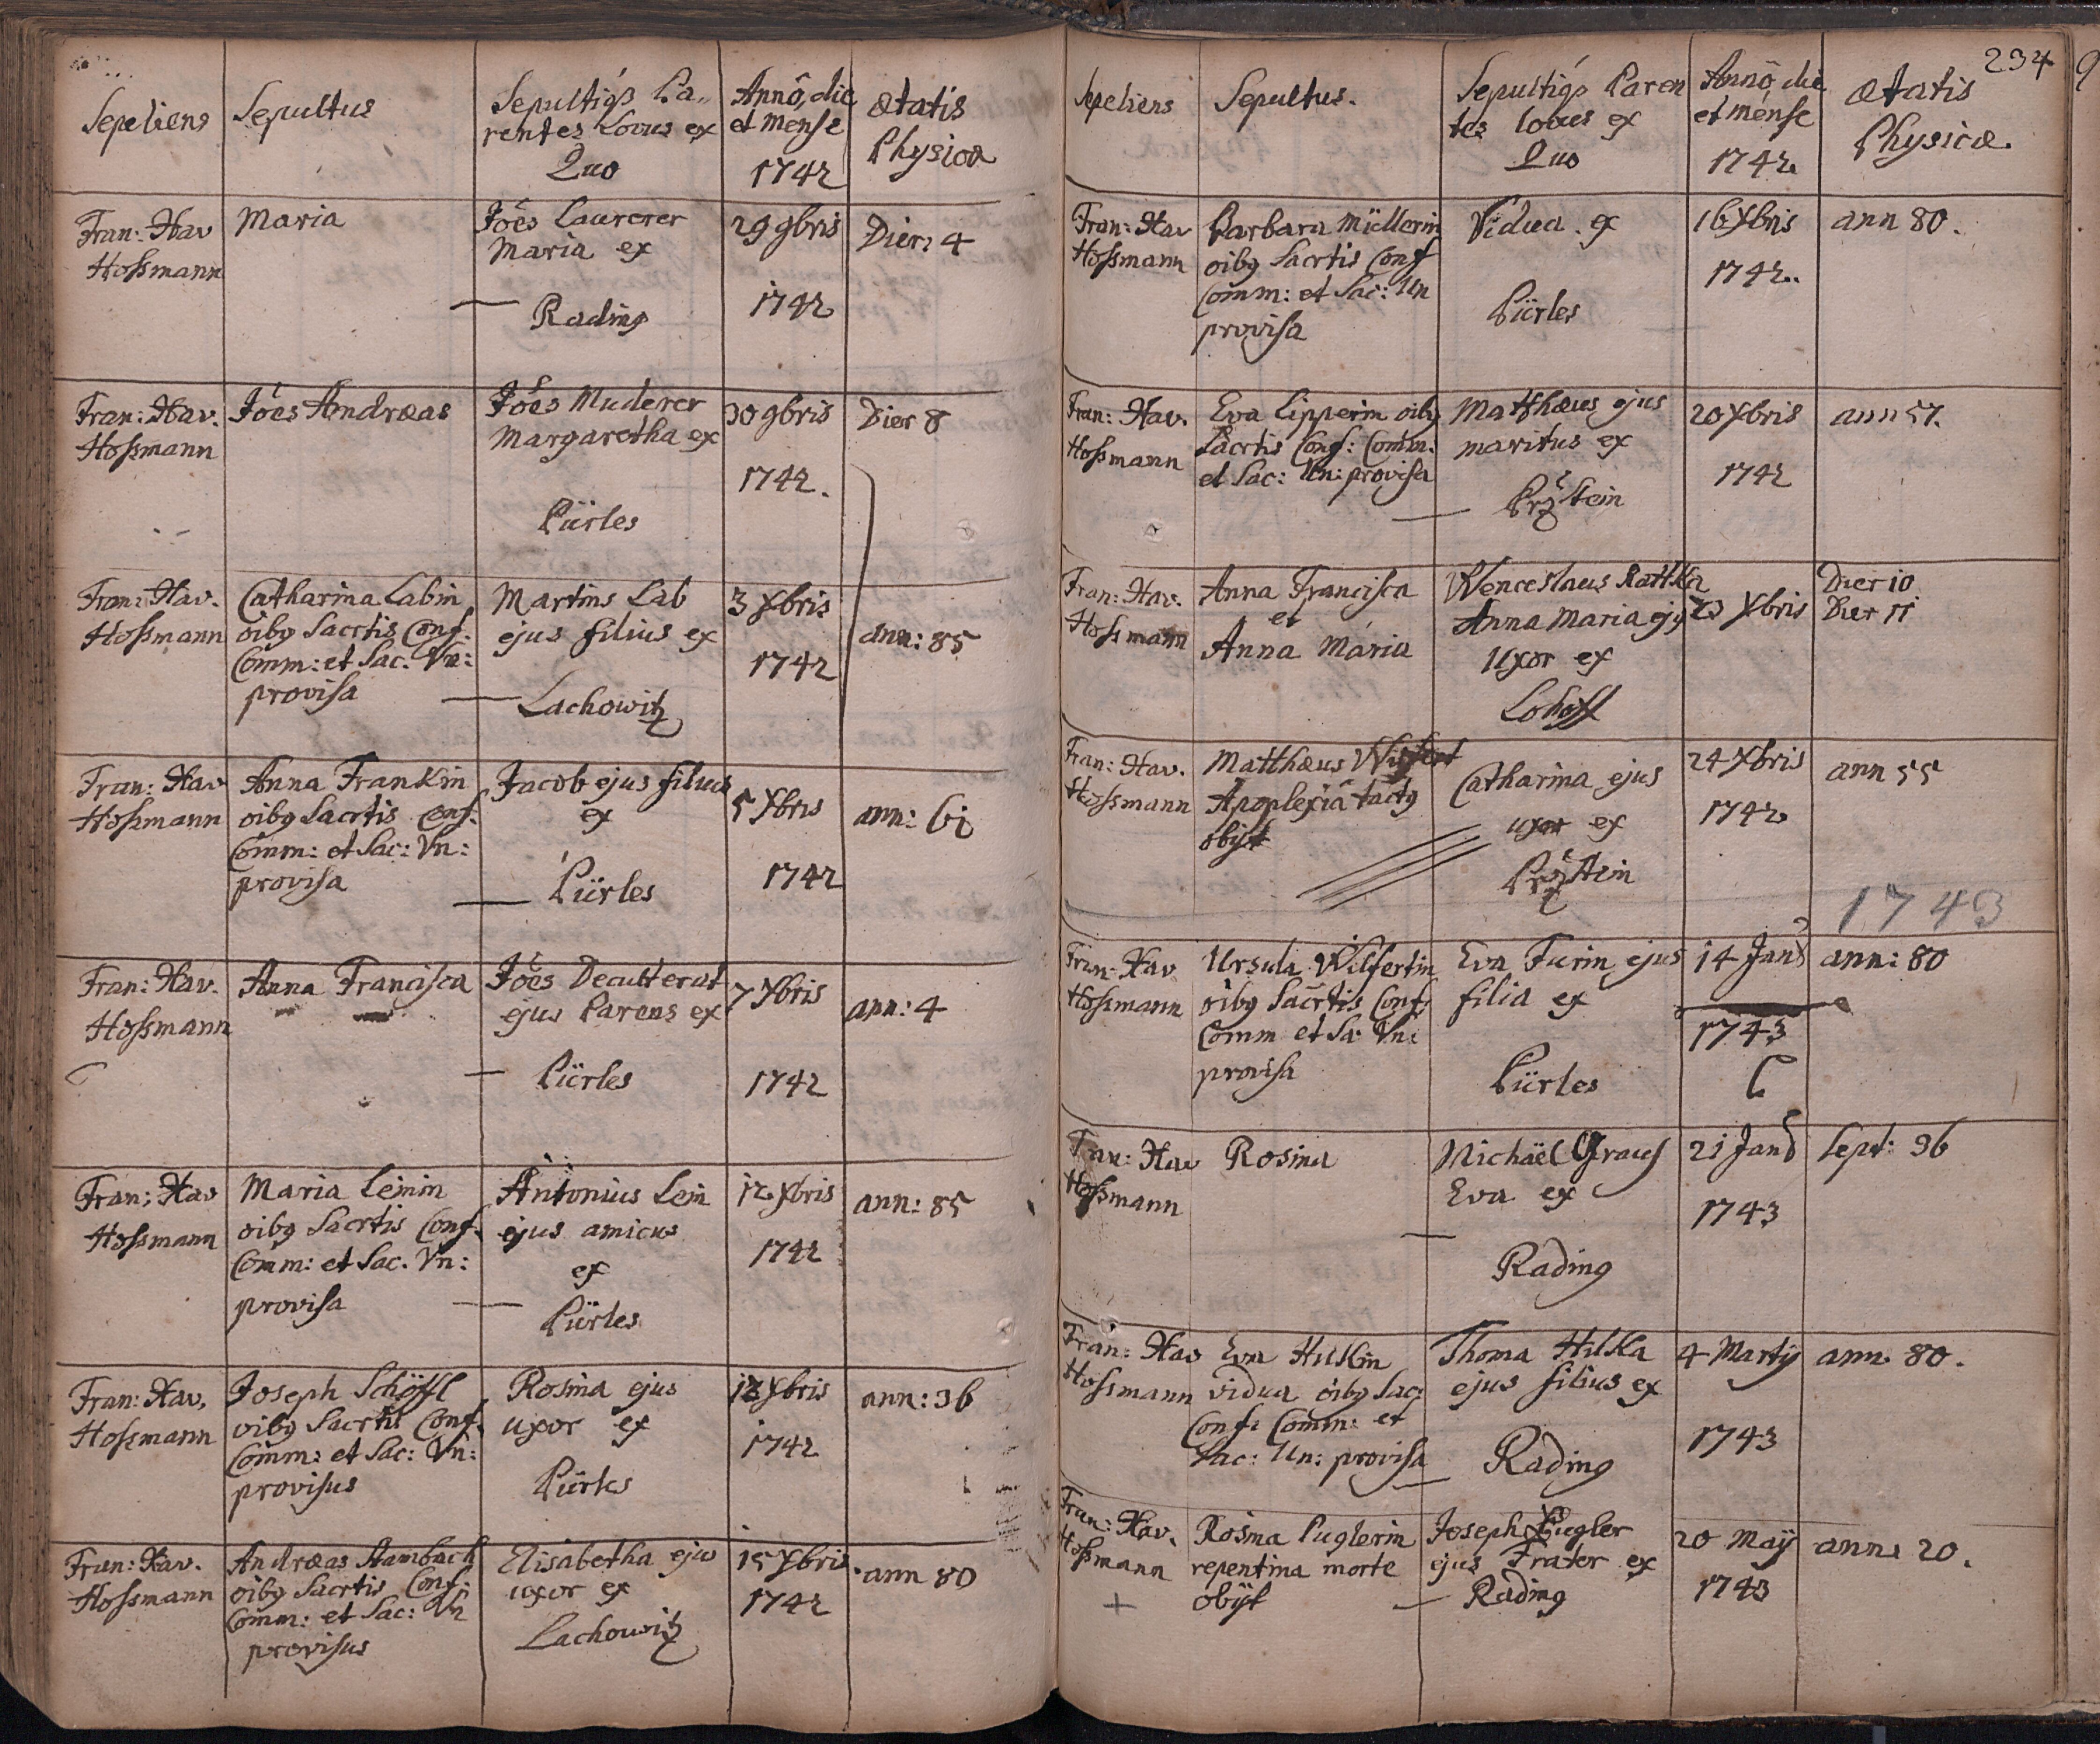 Sepeliens
Sepultus
Sepultiqs Pa„
rentes Locus ex
Quo
Anno, die
et mense
1742
ætatis
Physicæ
Fran: Xav
Hossmann
Maria
Joes Laurerer
Maria ex
— Rading
29 9bris
1742
Dier: 4
Fran: Xav.
Hossmann
Joes Andræas
Joes Muderer
Margaretha ex
Pürles
30 9bris
1742.
Dier 8
Fran: Xav.
Hossmann
Catharina Labin
oibg Sacrtis Conf:
Comm: et Sac: Vn:
provisa
Martins Lab
ejus filius ex
— Lachowitz
3 Xbris
1742
ann: 85
Fran: Xav
Hossmann
Anna Frankin
oibg Sacrtis Conf:
Comm: et Sac: Vn:
provisa
Jacob ejus filius
ex
— Pürles
5 Xbris
1742
ann: 61
Fran: Xav.
Hossmann
Anna Francisca
Joes
ejus Parens ex
— Pürles
7 Xbris
1742
ann: 4
Fran: Xav
Hossmann
Maria Leinin
oibg Sacrtis Conf:
Comm: et Sac. Vn:
provisa
Antonius Lein
ejus amicus
ex
— Pürles
12 Xbris
1742
ann: 85
Fran: Xav.
Hossmann
Joseph Schöffl
oibg Sacrtis Conf:
Comm: et Sac: Vn:
provisus
Rosina ejus
uxor ex
Pürles
Xbris
1742
ann: 36
Fran: Xav.
Hossmann
Andræas Stambach
oibg Sacrtis Conf:
Comm: et Sac: Vn
provisus
Elisabetha ejus
uxor ex
Lachowitz
15 Xbris
1742
ann 80
234
Sepeliens
Sepultus.
Sepultiqs Paren
tes locus ex
Quo
Anno, die
et mense
1742
ætatis
Physicæ.
Fran: Xav
Hossmann
Barbara Müllerin
oibg Sacrtis Conf
Comm: et Sac: Un
provisa
Vidua. ex
Pürles
16 Xbris
1742..
ann 80.
Fran: Xav.
Hossmann
Eva Lipperin oibg
Sacrtis Conf: Comm:
et Sac: Un: provisa
Matthæus ejus
maritus ex
— Przstein
20 Xbris
1742
ann 57.
Fran: Xav.
Hossmann
Anna Francisca
et
Anna Maria
Wenceslaus Rattka
Anna Maria ejg
Uxor ex
Lohoff
23 Xbris
Dier 10
Dier 11
Fran: Xav.
Hossmann
Matthæus
Apoplexiâ tactg
obijt
Catharina ejus
uxor ex
Przstein
24 Xbris
1742
ann 55
1743
Fran: Xav
Hossmann
Ursula Wilfertin
oibg Sacrtis Conf:
Comm et Sa: Vn:
provisa
Eva Furin ejus
filia ex
Pürles
14 Jan
1743
ann: 80
Fran: Xav
Hossmann
Rosina
Michäel Grauf
Eva ex
— Rading
21 Jan
1743
Sept: 36
Fran: Xav
Hossmann
Eva Hilkin
vidua oibg Sac:
Conf: Comm: et
Sac: Un: provisa
Thoma Hilka
ejus filius ex
— Rading
4 Martij
1743
ann. 80.
Fran: Xav.
Hossmann
+
Rosina Puglerin
repentina morte
obijt
Joseph Pugler
ejus Frater ex
— Rading
20 Maij
1743
ann: 20.